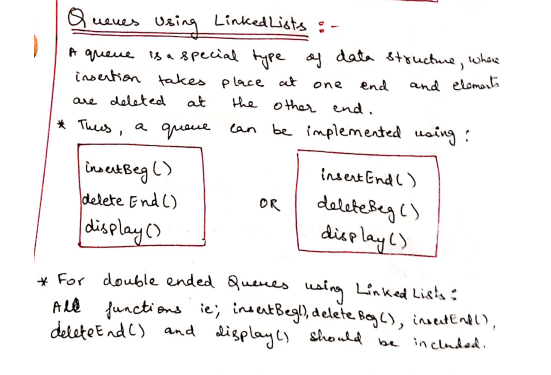 Queues Using LinkedLists :-
A queue is a special type of data structure, where
insertion takes place at one end and elements
are deleted at the other end.
* Thus, a queue can be implemented using :
insertBeg()
delete End()
display()
OR
insertEnd()
deleteBeg()
display()
* For double ended Queues using Linked Lists :
All functions ie; insertBeg(), delete Beg(), insertEnd(),
deleteEnd() and display() should be included.